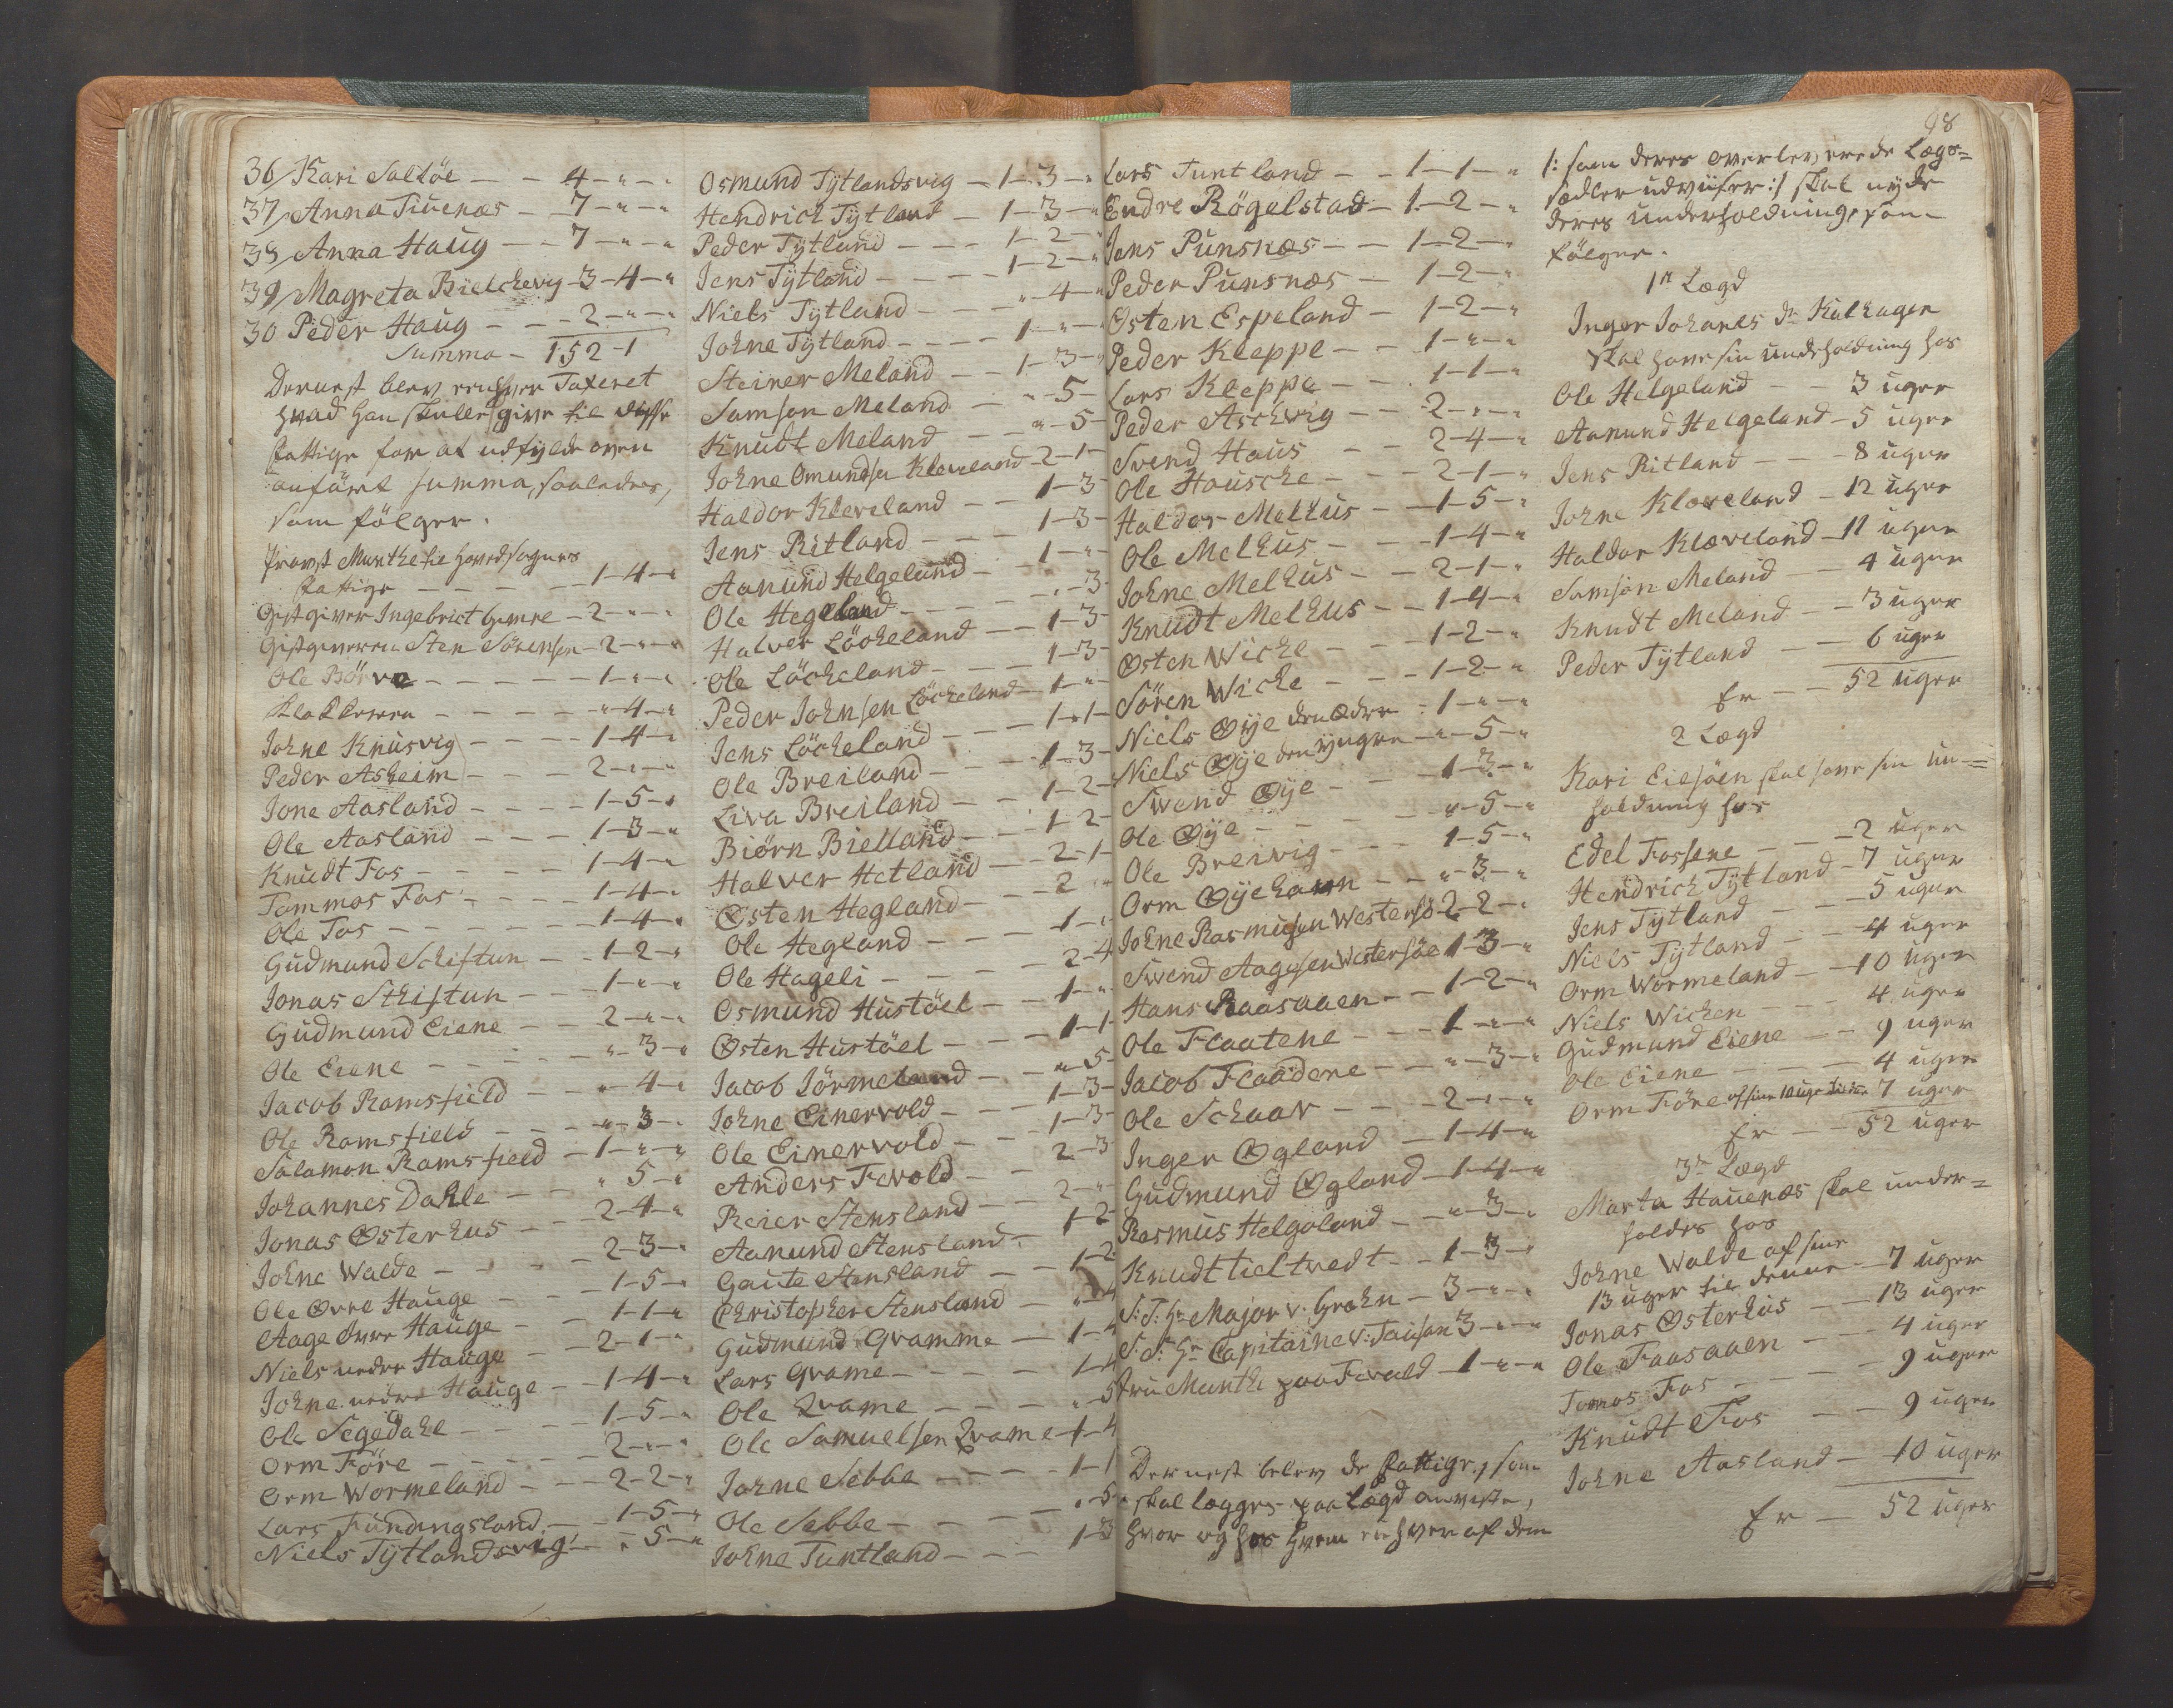 36/ Kari Saltöe - - 4-"-"
37/ Anna Tiuenæs - 7-"-"
38/ Anna Haug - - 7-"-"
39/ Magreta Bielchevig - 3-4-"
30 Peder Haug - - - 2-"-"
Summa - 152-1
Dernest blev enhver Taxeret
hvad han skulle give til disse
fattige for at udfylde oven
anförte summa, saaledes,
som fölger.
Provst Munthe til hovedsognes
fattige - - - - 1-4-"
Gestgiver Ingebrict - 2-"-"
Gestgiveren Sten Sörensen - 2-"-"
Ole Börve - - - - - 1-"-"
Klokkeren - - - - - "-4-"
Johne Knusvig - - - - 1-4-"
Peder Asheim - - - - 2-"-"
Jone Aasland - - - - 1-5-"
Ole Aasland - - - 1-3-"
Knudt Fos - - - - - 1-4-"
Tommas Fos - - - - 1-4-"
Ole Fos - - - - - - 1-4-"
Gudmund Schiftun - - 1-2-"
Jonas Schiftun - - - 1-"-"
Gudmund Eiene - - - 2-"-"
Ole Eiene - - - - "-3-"
Jacob Ramsfield - - - "-4-"
Ole Ramsfield - - - - "-3-"
Salamon Ramsfield - 1-"-"
Johannes Dahle - - - " 5-"
Jonas Østerhus - - 2-4-"
Johne Walde - - - - 2-3-"
Ole Øvre Hauge - - - 1-5-"
Aage Øvre Hauge - - 1-1-"
Niels nedre Hauge - - 2-1-"
Johne nedre Hauge - - 1-4-"
Ole Segedahl - - - - 1-5-"
Orm Före - - - - - 2-"-"
Orm Wormeland - - 2-2-"
Lars Fundingsland - - 1-5-"
Niels Tÿtlandsvig - " 5-"
Osmund Tÿtlandsvig - 1-3-"
Hendrich Tÿtland - 1-3-"
Peder Tÿtland - - - 1-2-"
Jens Tÿtland - - - 1-2-"
Niels Tÿtland - - - "-4-"
Johne Tÿtland - - - - 1-"-"
Steiner Meland - - 1-3-"
Samson Meland - - "-5-
Knudt Meland - - "-5-
Johne Omundsen Kleveland - 2-1-
Haldor Kleveland - - 1-3
Jens Ritland - - - - 1-3-
Aanund Helgeland - - 1-"-
Ole Hegeland - - - - "-3-
Halver Löcheland - - 1-3-
Ole Löcheland - - - - 1-3-
Peder Johnsen Löcheland - 1-"-
Jens Löcheland - - - 1-1-
Ole Breiland - - - - 1-3-
Liva Breiland - - 1-2-
Biörn Bielland - - - 1-2-
Halver Hetland - - - 2-1-
Østen Hegland - - - - 2 "
Ole Hegland - - - - 1-"
Ole Hageli - - - - - 2-4
Osmund Hustöel - - - 1-"
Østen Hustöel - - - - 1-1
Jacob Jörmeland - - "-5-
Johne Einervold - - - 1-3-
Ole Einervold - - - 1-3-
Anders Fevold - - - 2-3
Reier Stensland - - 2-"
Aanund Stensland - - 1-2
Gaute Stensland - - 1-2
Christopher Stensland - "-4
Gudmund Qvamme - 1-4
Lars Qvame - - - - 1-4
Ole Qvame - - - - "-5
Ole Samuelsen Qvame - 1-4
Johne Sebbe - - - - 1-1
Ole Sebbe - - - - - "-5-
Johne Tuntland - - - 1-3
Lars Tuntland - - 1-1-"
Endre Rögelstad - 1-2-"
Jens Punsnæs - - 1-2-"
Peder Punsnæs - 1-2-"
Østen Espeland - 1-2-"
Peder Kleppe - - 1-"-"
Lars Kleppe - - - 1-1-"
Peder Aschvig - - 2-"-"
Svend Haus - - 2-4-"
Ole Hausche - - - 2-1-"
Haldor Melhus - - 1-5-"
Ole Melhus - - - 1-4-"
Johne Melhus - - 2-1-"
Knudt Melhus - - 1-4-"
Østen Wiche - - - 1-2-"
Sören Wiche - - - 1-2-"
Niels Øÿe den Ældre - 1-"-"
Niels Øÿe den ÿngre - "-5-"
Swend Øÿe - - 1-3-"
Ole Øÿe - - - - "-5-"
Ole Breivig - - - 1-5-"
Orm Øÿehavn - - "-3-"
Johne Rasmusen Westersö 2-2-"
Swend Aagesen Westersöe 1-3-"
Hans Raasaaen - - 1-2-"
Ole Flaatene - - - 1-"-"
Jacob Flaadene - - "-3-"
Ole Schaar - - - 2-"-"
Inger Øgland - 1-4-"
Gudmund Øgland - 1-4-"
Rasmus Helgaland - "-3-"
Knudt tieltvedt - 1-3-"
S: T: Hr Major v. Grahn - 3-"-"
S: T: Hr Capitaine v: Tausan 3-"-"
Fru Munthe paa Fevald - 1-"-"
Dernest blev de fattige, som
skal lægges paa Lægd anviste,
hvor og hos hvem enhver af dem
98
/: som deres overleverede Lægs=
sedler udviiser :/ skal nÿde
deres underholdning, som
fölger.
1te Lægd
Inger Johanes dr Kalhagen
skal have sin underholdning hos
Ole Helgeland - - 3 uger
Aanund Helgeland - 5 uger
Jens Ritland - - - 8 uger
Johne Klæveland - 12 uger
Haldor Klæveland - 11 uger
Samson Meland - - 4 uger
Knudt Meland - - 3 uger
Peder Tÿtland - - 6 uger
Er - - 52 uger
2 Lægd
Kari Eiesöen skal have sin un=
holdning hos
Edel Fossene - - - 2 uger
Hendrich Tÿtland - 7 uger
Jens Tÿtland - - - 5 uger
Niels Tÿtland - - - 4 uger
Orm Wormeland - - 10 uger
Niels Wichen - - - 4 uger
Gudmund Eiene - - 9 uger
Ole Eiene - - - - 4 uger
Orm Före af sine 10 uger 7 uger
Er - - 52 uger
3de Lægd
Marta Hauenæs skal under=
holdes hos
Johne Walde af sine
13 uger til denne - 7 uger
Jonas Østerhus - - 13 uger
Ole Faasaaen - - - 4 uger
Tomos Fos - - - - 9 uger
Knudt Fos - - - 9 uger
Johne Aasland - - 10 uger
Er - 52 uger